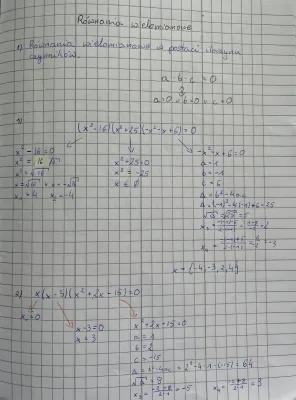 Równania wielomianowe
1) Równania wielomianowe w postaci iloczynu
czynników.
a · b · c = 0
⇕
a=0 ∨ b=0 ∨ c=0
(x²-16)(x²+25)(-x²-x+6)=0
x²-16=0
x²=16
x=√16 ∨ x=-√16
x=4 x=-4
x²+25=0
x²=-25
x∈∅
-x²-x+6=0
a=-1
b=-1
c=6
Δ=b²-4ac
Δ=(-1)²-4·(-1)·6=25
x={-4,-3,2,4}
2) x(x-5)(x²+2x-15)=0
x=0
x-3=0
x=3
x²+2x-15=0
a=1
b=2
c=-15
Δ=b²-4ac=2²-4·1·(-15)=64
√Δ=8